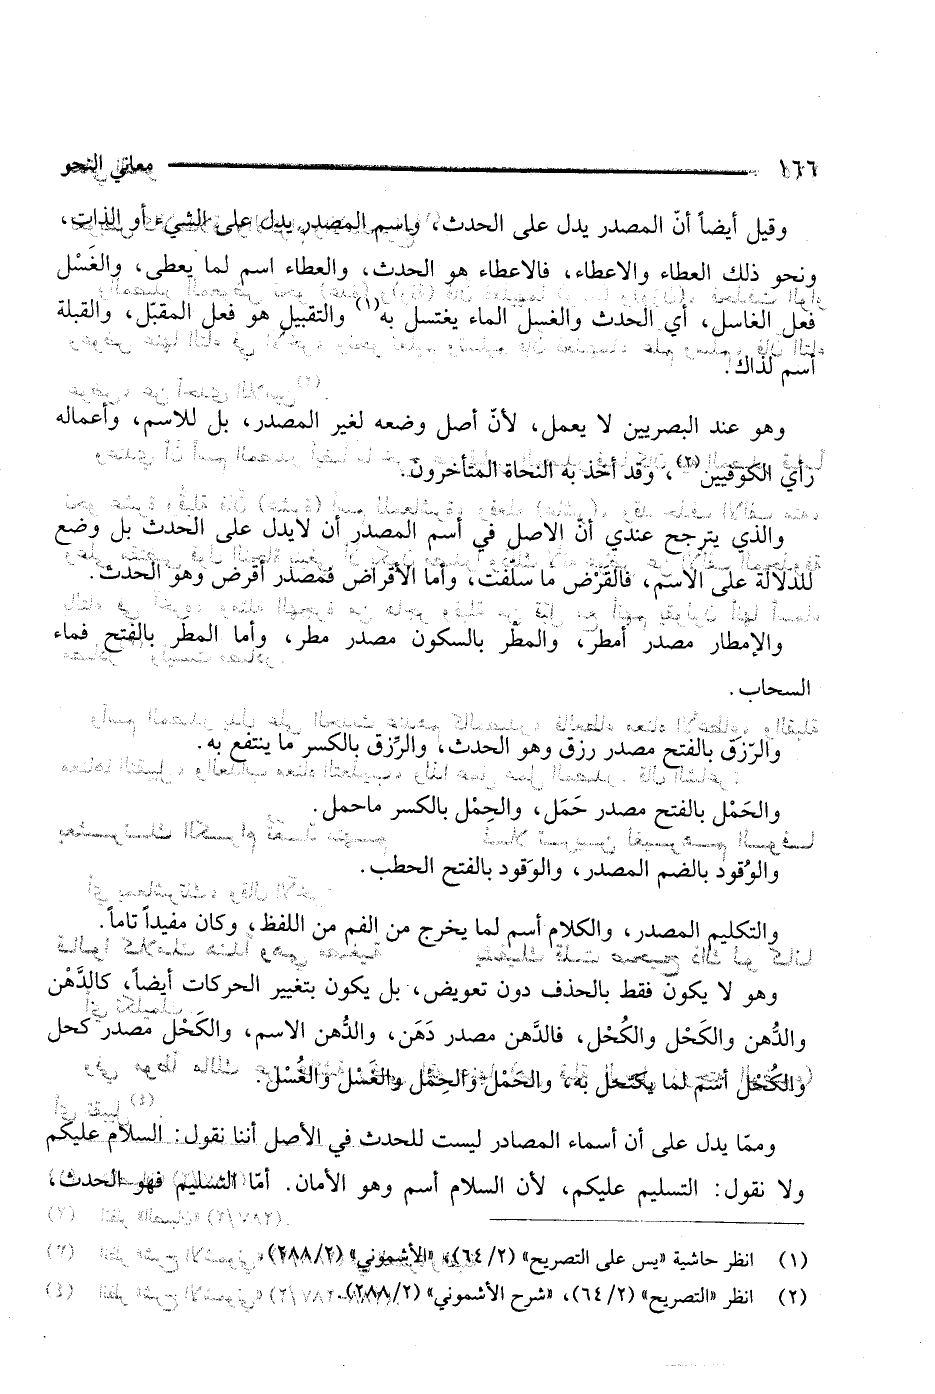 ١٦٦ معاني النحو
وقيل أيضاً أنّ المصدر يدل على الحدث، واسم المصدر يدل على الشيء أو الذات،
ونحو ذلك العطاء والاعطاء، فالاعطاء هو الحدث، والعطاء اسم لما يعطى، والغَسْل
فعل الغاسل، أي الحدث والغسل الماء يغتسل به(١) والتقبيل هو فعل المقبّل، والقبلة
أسم لذاك.
وهو عند البصريين لا يعمل، لأنّ أصل وضعه لغير المصدر، بل للاسم، وأعماله
رأي الكوفيين(٢)، وقد أخذ به النحاة المتأخرون.
والذي يترجح عندي أنّ الاصل في أسم المصدر أن لايدل على الحدث بل وضع
للدلالة على الاسم، فالقَرْض ما سلفت، وأما الأقراض فمصدر أقرض وهو الحدث.
والإمطار مصدر أمطر، والمطْر بالسكون مصدر مطر، وأما المطَر بالفتح فماء
السحاب.
والرَزق بالفتح مصدر رزق وهو الحدث، والرِّزق بالكسر ما ينتفع به.
والحَمْل بالفتح مصدر حَمَل، والحِمْل بالكسر ماحمل.
والوُقود بالضم المصدر، والوَقود بالفتح الحطب.
والتكليم المصدر، والكلام أسم لما يخرج من الفم من اللفظ، وكان مفيداً تاماً.
وهو لا يكون فقط بالحذف دون تعويض، بل يكون بتغيير الحركات أيضاً، كالدَّهْن
والدُّهن والكَحْل والكُحْل، فالدَّهن مصدر دَهَن، والدُّهن الاسم، والكَحْل مصدر كحل
والكُحْل أسم لما يكتحل به، والحَمْل والحِمْل والغَسْل والغُسْل.
وممّا يدل على أن أسماء المصادر ليست للحدث في الأصل أننا نقول: السلام عليكم
ولا نقول: التسليم عليكم، لأن السلام أسم وهو الأمان. أمّا التسليم فهو الحدث،
(١) انظر حاشية «يس على التصريح» (٢/ ٦٤)، «الأشموني» (٢٨٨/٢).
(٢) انظر «التصريح» (٢/ ٦٤)، «شرح الأشموني» (٢٨٨/٢).